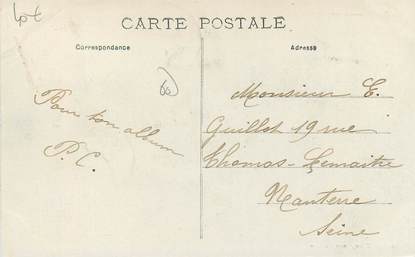 Lot
CARTE POSTALE
Correspondance
Adresse
60
Pour ton album
P. C.
Monsieur E.
Guillot 19 rue
Thomas-Lemaitre
Nanterre
Seine